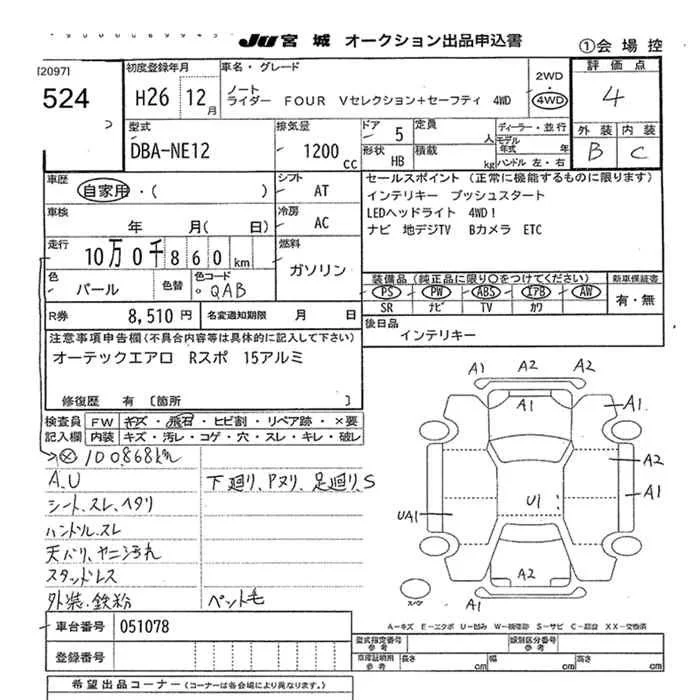 JU 宮城 オークション出品申込書
①会場控
[2097]
524
初度登録年月
H26 12月
車名・グレード
ノート
ライダー FOUR Vセレクション+セーフティ 4WD
2WD
4WD
評価点
4
外装 内装
B C
型式
DBA-NE12
排気量
1200 cc
ドア 5
形状 HB
定員 人
積載 kg
ディーラー・並行
モデル年式 年
ハンドル 左・右
車歴
自家用・( )
シフト AT
車検 年 月( 日)
冷房 AC
走行
10万0千860km
燃料 ガソリン
色 パール
色替
色コード QAB
R券 8,510円
名変通知期限 月 日
セールスポイント (正常に機能するものに限ります)
インテリキー プッシュスタート
LEDヘッドライト 4WD!
ナビ 地デジTV Bカメラ ETC
装備品(純正品に限り○をつけてください)
PS PW ABS エアB AW
SR ナビ TV カワ
新車保証書
有・無
後日品 インテリキー
注意事項申告欄(不具合内容等は具体的に記入して下さい)
オーテックエアロ Rスポ 15アルミ
修復歴 有 [箇所 ]
検査員記入欄
FW キズ・飛石・ヒビ割・リペア跡・×要
内装 キズ・汚レ・コゲ・穴・スレ・キレ・破レ
⊗ 100,868km
A.U
シート.スレ.ヘタリ
ハンドル.スレ
天バリ、ヤニ汚れ
スタッドレス
外装.鉄粉
下廻り、Pヌリ、足廻り、S
ペント毛
A1 A2 A2
A1
A1
A2
A1
U1
UA1
A2
A1
スペア
A-キズ E-エクボ U-凹み W-補修跡 S-サビ C-腐食 XX-交換済
車台番号 051078
登録番号
型式指定番号
類別区分番号
車庫証明用参考
長さ cm
幅 cm
高さ cm
希望出品コーナー(コーナーは各会場により異なります。)